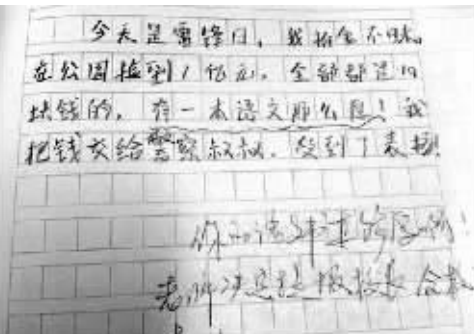 今天是雷锋日,我拾金不昧。
在公园捡到1亿元,全部都是10
块钱的,有一本语文那么厚!我
把钱交给警察叔叔,受到了表扬!
你的语
老师决定 报校长